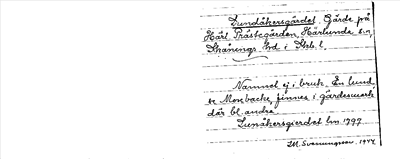 Lundåkersgärdet. Gärde på
Härl. Prästegården, Härlunda s:n,
Skånings hd i Skb. l.
Namnet ej i bruk. En lund
se Mosebacke, finnes i gärdesmark
där bl. andra
Lunåkersgierdet lm 1797.
M. Svenungsson. 1944